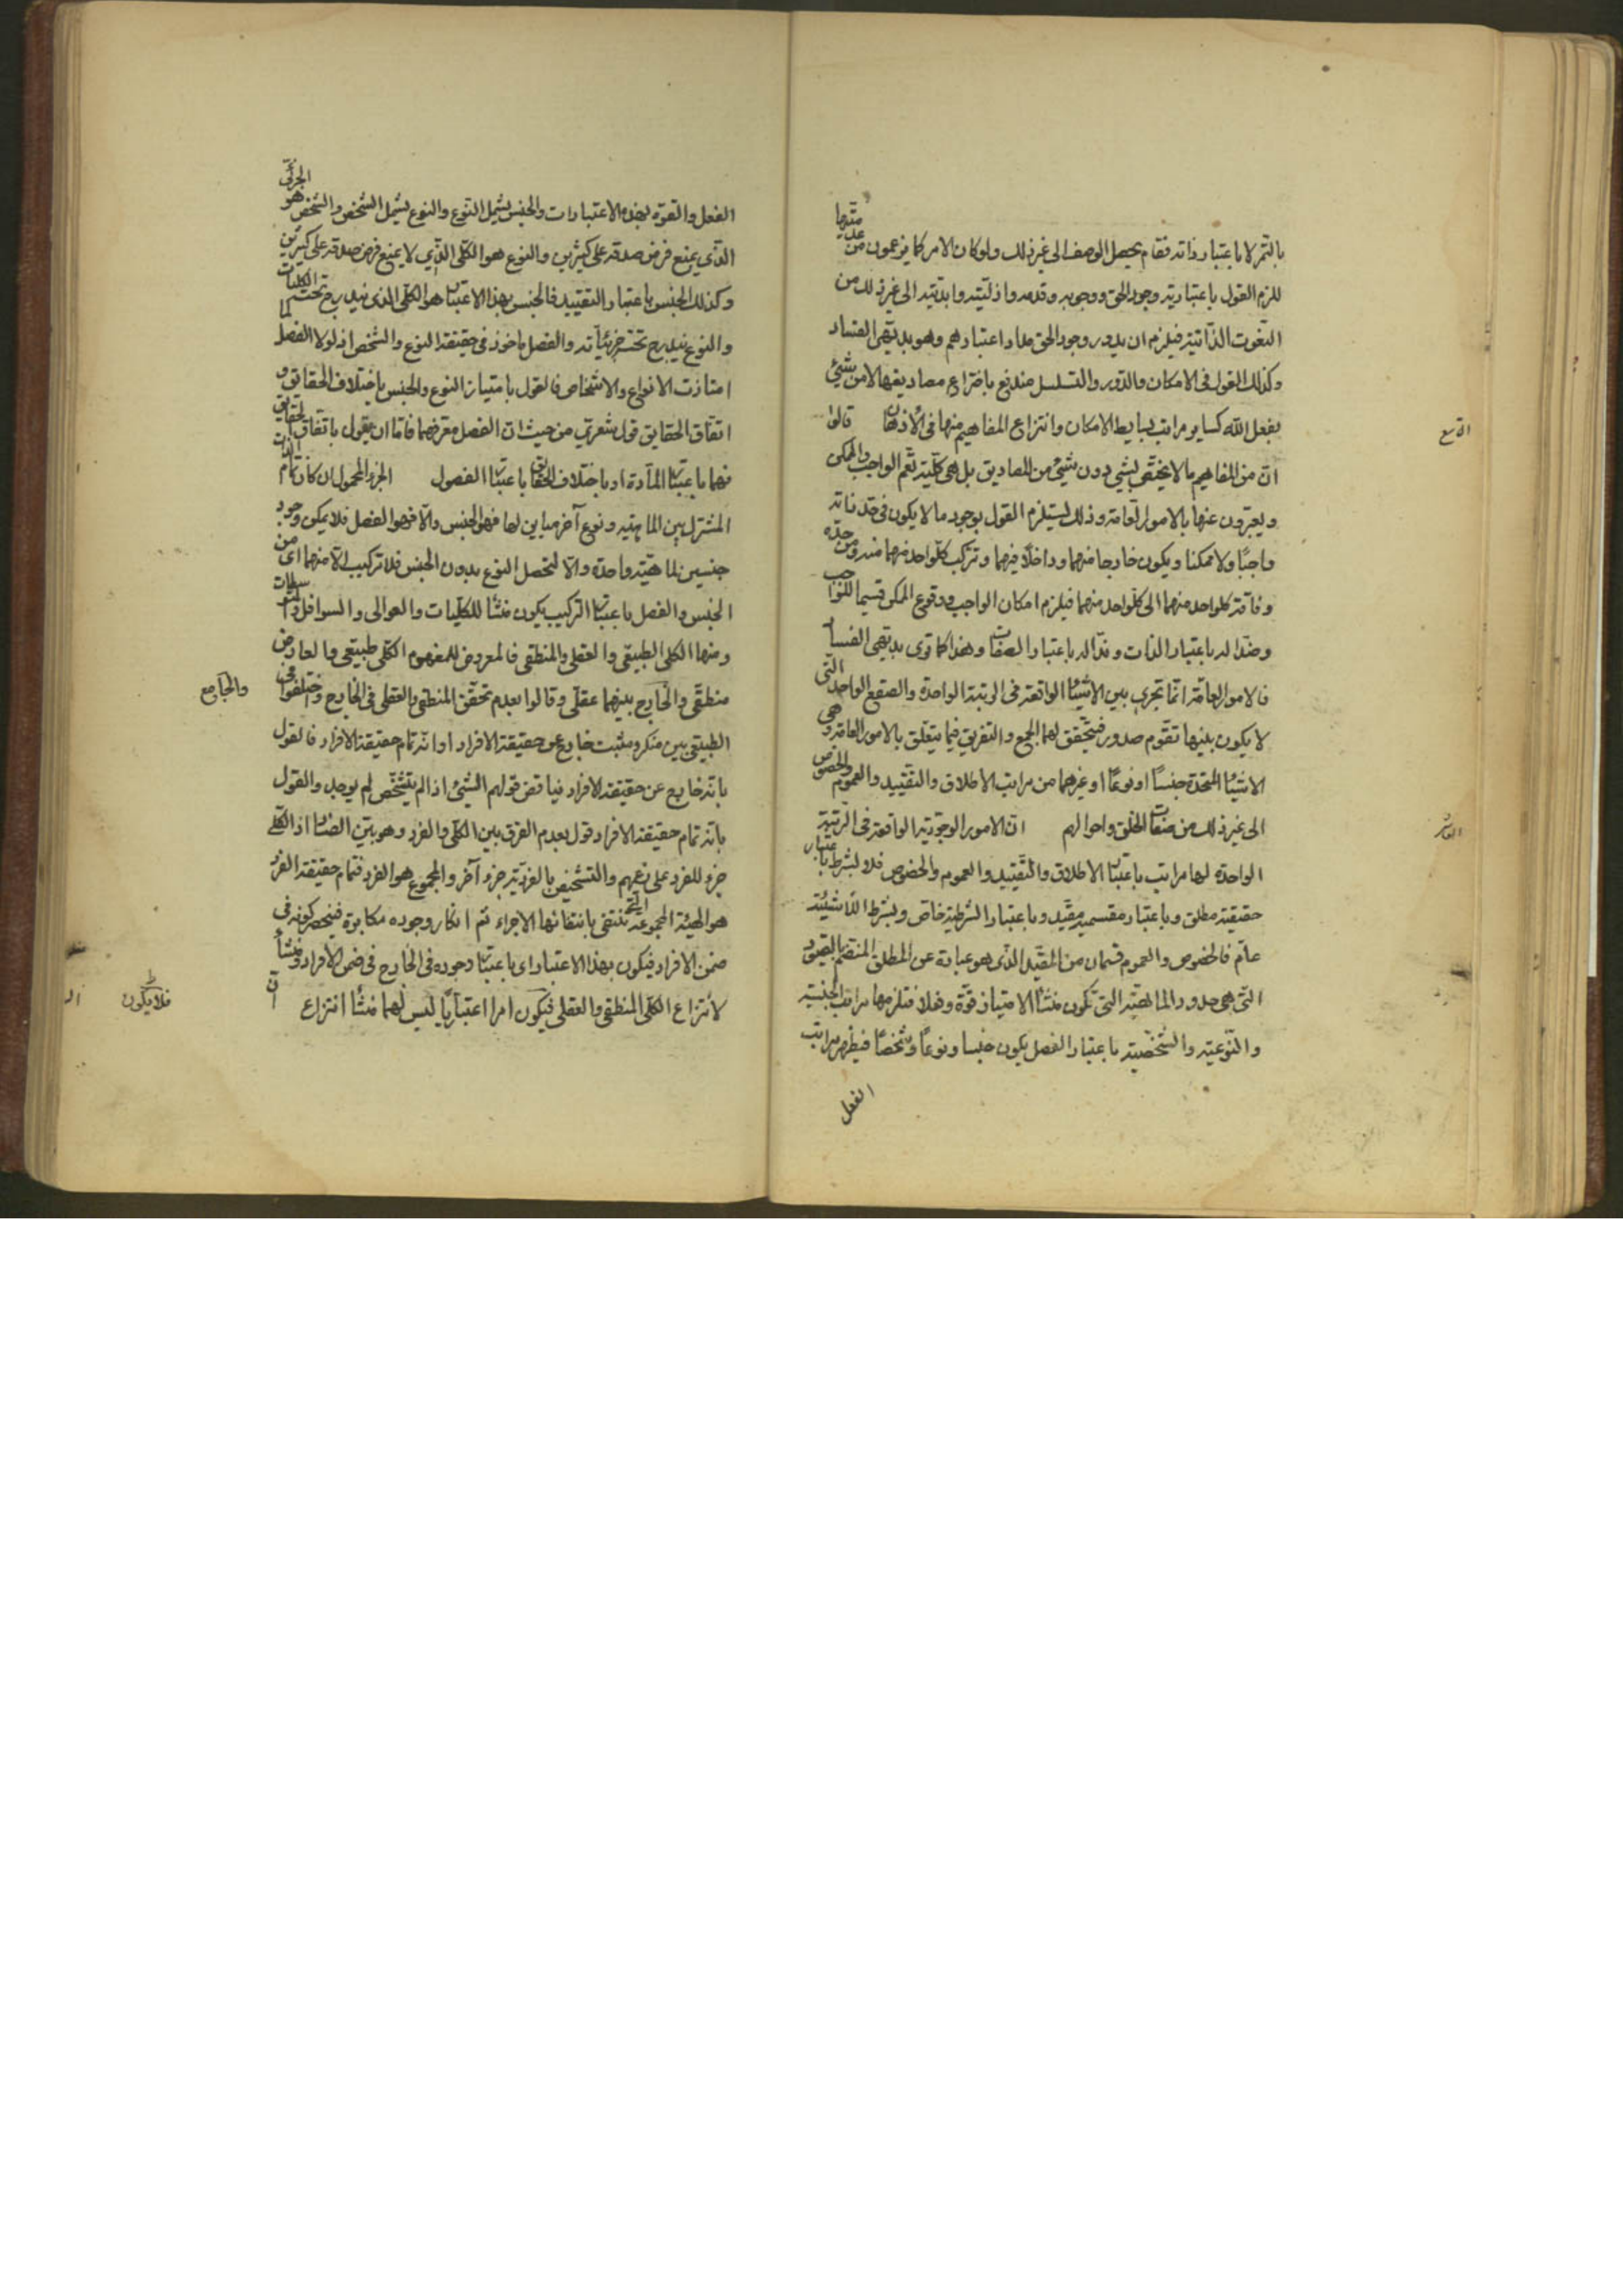 بالتمر لا باعتبار ذاته فقام يحصل الوصف الى غير ذلك ولو كان الامر كما يزعمون من عدميتها
للزم القول باعتبارية وجود الحق ووجوبه وقدمه واذليته وابديته الى غير ذلك من
النعوت الذاتية فيلزم ان يدور وجود الحق مدار اعتبارهم وهو بديهى الفساد
وكذلك القول فى الامكان والدور والتسلسل مندفع باختراع مصاديقها لا من شىء
بفعل الله كساير مراتب بسايط الامكان وانتزاع المفاهيم منها فى الاذهان قالوا
التاسع
ان من المفاهيم ما لا يختص بشى دون شىء من المصاديق بل هى كلية تعم الواجب والممكن
ويعبرون عنها بالامور العامة وذلك يستلزم القول بوجود ما لا يكون فى حد ذاته
واجبًا ولا ممكنا ويكون خارجا منهما وداخلًا فيهما وتركب كلواحد منهما منه ومن حده
وفاقة كلواحد منهما الى كلواحد منهما فيلزم امكان الواجب ووقوع الممكن قسيما للواجب
وضدا له باعتبار الذات وندا له باعتبار الصفات وهذا كما ترى بديهى الفساد
فالامور العامة انما تجرى بين الاشياء الواقعة فى الرتبة الواحدة والصقع الواحد التى
لا يكون بينها تقوم صدور فيتحقق لها الجمع والتفريق فيما يتعلق بالامور العامة وهى
الاشياء المتحدة جنسًا او نوعًا او غيرهما من مراتب الاطلاق والتقييد والعموم والخصوص
الى غير ذلك من صفات الخلق واحوالهم ان الامور الوجودية الواقعة فى الرتبة
العاشر
الواحدة لها مراتب باعتبار الاطلاق والتقييد والعموم والخصوص فلا بشرط باعتبار
حقيقته مطلق وباعتبار مقسميه مقيد وباعتبار الشرطية خاص وبشرط اللاشيئية
عام فالخصوص والعموم قسمان من المقيد الذى هو عبارة عن المطلق المنضم بالقيود
التى هى حدود الماهية التى تكون منشأ الامتياز قوة وفعلا فتلزمها مراتب الجنسية
والنوعية والشخصية باعتبار الفصل يكون جنسا ونوعًا وشخصًا فيظهر مراتب
الفعل
الفعل والقوة بهذه الاعتبارات والجنس يشمل النوع والنوع يشمل الشخص والشخص هو الجزئى
الذى يمنع فرض صدقه على كثيرين والنوع هو الكلى الذى لا يمنع فرض صدقه على كثيرين
وكذلك الجنس باعتبار التقييد فالجنس بهذا الاعتبار هو الكلى الذى يندرج تحته الكليات
والنوع يندرج تحته جزئياته والفصل ماخوذ فى حقيقة النوع والشخص اذ لولا الفصل لما
امتازت الانواع والاشخاص فالقول بامتياز النوع والجنس باختلاف الحقايق و
اتفاق الحقايق قول شعرى من حيث ان الفصل مقرضهما فاما ان يقول باتفاق الحقايق
فهما باعتبار المادة او باختلاف الحقايق باعتبار الفصول الجزء المحمول ان كان تمام الذات
المشترك بين الماهية ونوع آخر مباين لها فهو الجنس والا فهو الفصل فلا يمكن وجود
جنسين لماهية واحدة والا لتحصل النوع بدون الجنس فلا تركيب الا منهما اى من
الجنس والفصل باعتبار التركيب يكون منشأ للكليات والعوالى والسوافل والمتوسطات
ومنها الكلى الطبيعى والعقلى والمنطقى فالمعروض للمفهوم الكلى طبيعى والعارض
منطقى والخارج بينهما عقلى وقالوا بعدم تحقق المنطقى والعقلى فى الخارج واختلفوا فى
والجامع
الطبيعى بين منكر ومثبت خارج عن حقيقة الافراد او انه تمام حقيقة الافراد فالقول
بانه خارج عن حقيقة الافراد فيناقض قولهم الشىء اذا لم يتشخص لم يوجد والقول
بانه تمام حقيقة الافراد قول بعدم الفرق بين الكلى والفرد وهو بين الفساد اذ الكلى
جزء للفرد على زعمهم والتشخيص بالفردية جزء آخر والمجموع هو الفرد فتمام حقيقة الفرد
هو الهيئة المجموعة التى تنتفى بانتفائها الاجزاء ثم انكار وجوده مكابرة فينحصر كونه فى
ضمن الافراد فيكون بهذا الاعتبار اى باعتبار وجوده فى الخارج فى ضمن الافراد ومنشأ
لانتزاع الكلى المنطقى والعقلى فيكون امرا اعتباريًا ليس لهما منشأ انتزاع
فلا يكون